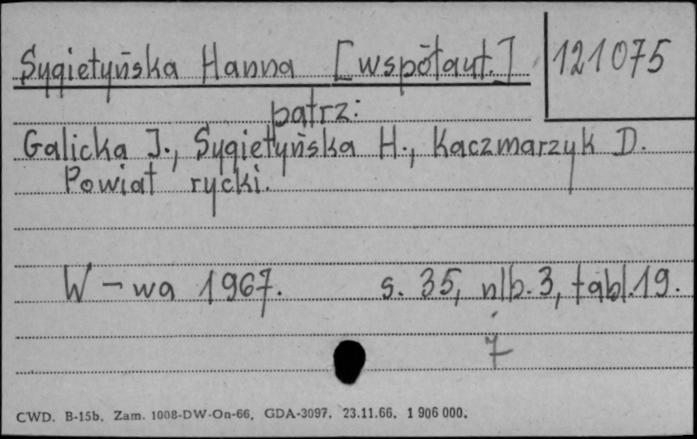 Sygietyńska Hanna [współaut.]
121075
patrz:
Galicka J., Sygietyńska H., Kaczmarzyk D.
Powiat rycki.
W-wa 1967. s. 35, nlb. 3, tabl. 19.
7
CWD. B-15b. Zam. 1008-DW-On-66. GDA-3097. 23.11.66. 1 906 000.